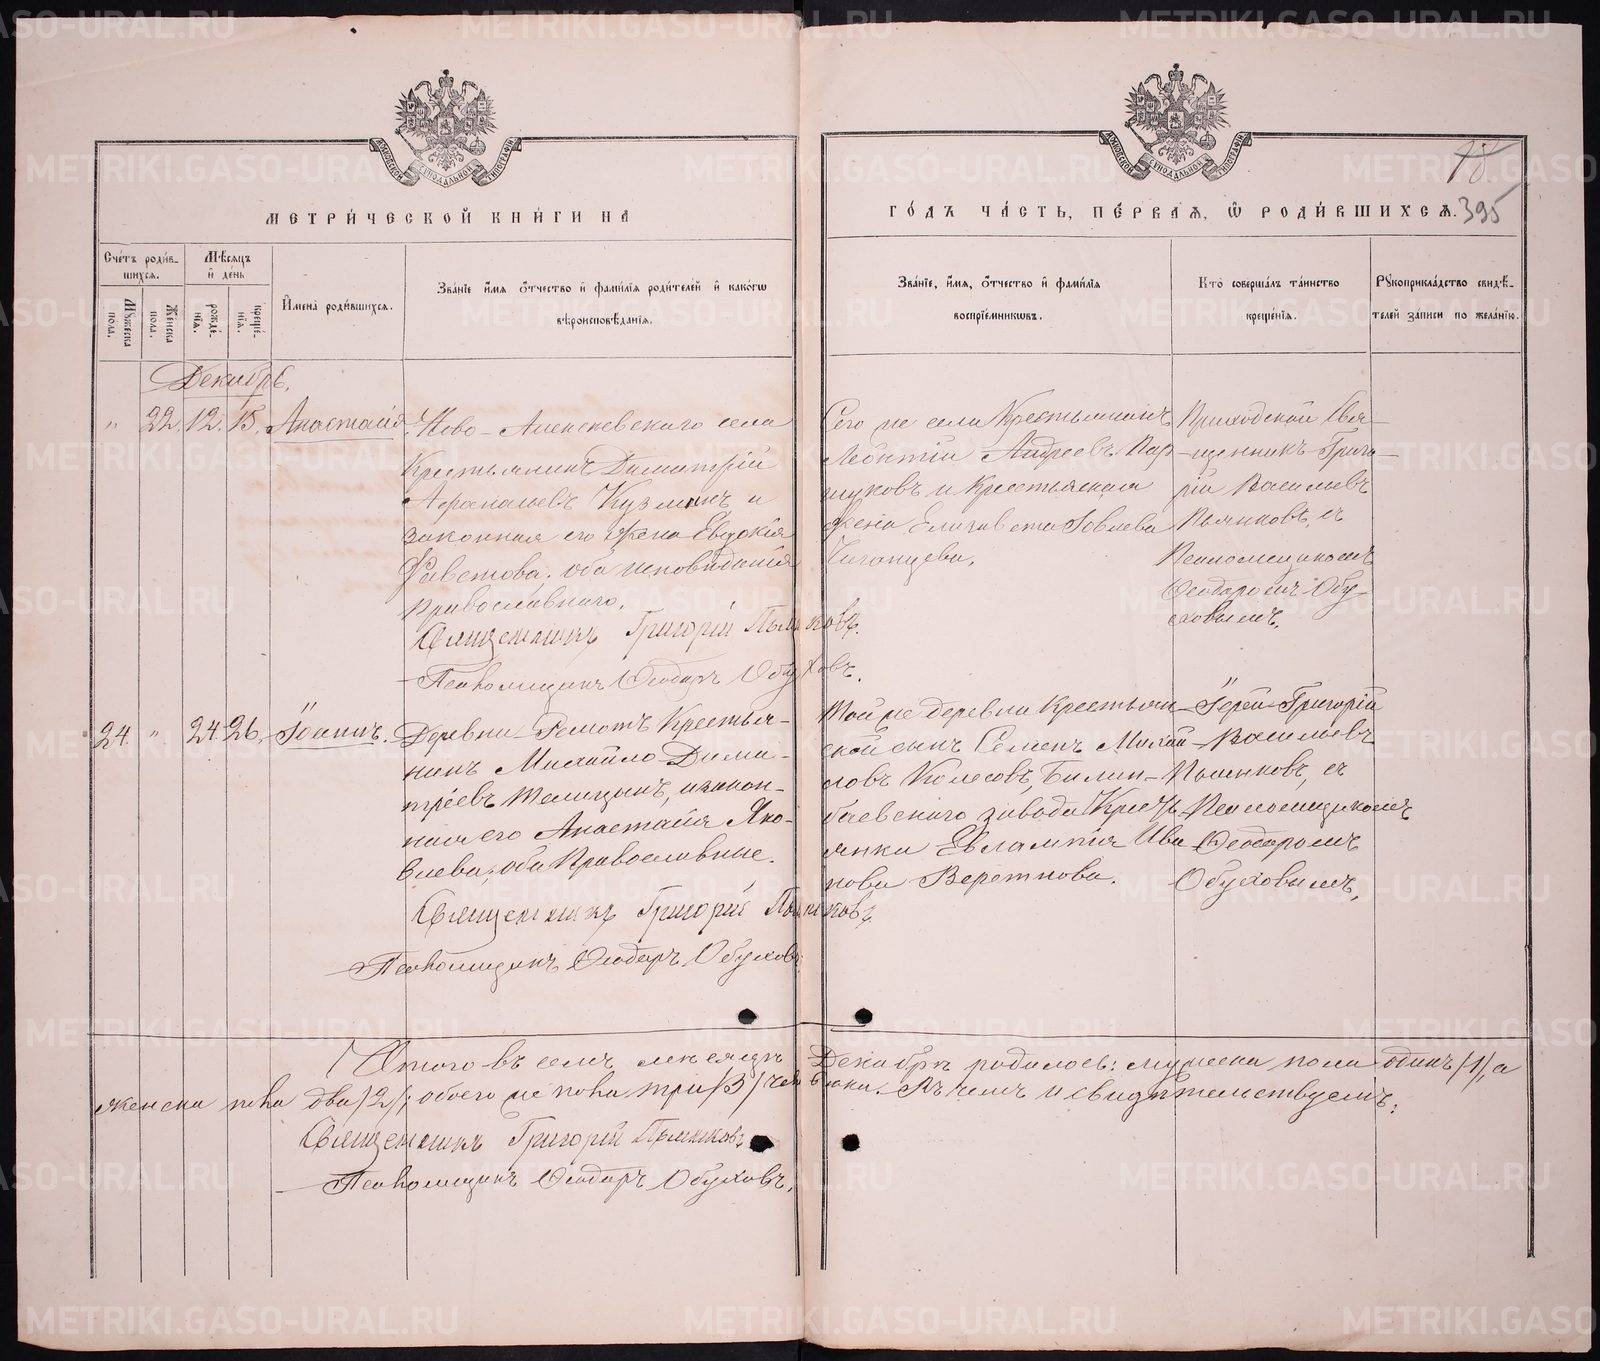 МЕТРИ́ЧЕСКОЙ КНИ́ГИ НА
ГО́ДЪ ЧА́СТЬ, ПЕ́РВАЯ, Ѡ РОДИ́ВШИХСЯ.
18
395
Сче́тъ роди́в-
шихся.
Мꙋжеска
пола.
Же́нска
пола.
Мѣ́сяцъ
и҆ де́нь
рожде́-
нїя.
креще́-
нїя.
И҆мена̀ роди́вшихся.
Зва́нїе и҆́мя ѻ҆́тчество и҆ фамѝлїя роди́телей и҆ како́гѡ
вѣроисповѣ́данїя.
Зва́нїе, и҆́мя, ѻ҆́тчество и҆ фамѝлїя
воспрїе́мникѡвъ.
Кто̀ соверша́лъ та́инство
креще́нїя.
Рꙋкоприкла́дство свидѣ́-
телей за́писи по жела́нїю.
Декабрь.
" 22. 12. 13. Анастасія
Ново-Алексеевскаго села
Крестьянинъ Димитрій
Афанасьевъ Кузминъ и
законная его жена Евдокія
Саветова, оба исповѣданія
православнаго.
Священникъ Григорій Пьянковъ.
Псаломщикъ Ѳеодоръ Обуховъ.
Сего же села Крестьянинъ
Леонтій Андреевъ Пар-
шуковъ и Крестьянская
жена Елизавета Іовлева
Приходской Свя-
щенникъ Григо-
рій Васильевъ
Пьянковъ, съ
Псаломщикомъ
Ѳеодоромъ Обу-
ховымъ.
24 " 24. 26. Іоаннъ.
Деревни Ремотъ Крестья-
нинъ Михайло Дими-
тріевъ и закон-
ная его Анастасія Яко-
влева, оба Православные.
Священникъ Григорій Пьянковъ.
Псаломщикъ Ѳеодоръ Обуховъ.
Той же деревни крестьян-
ской сынъ Семенъ Михай-
ловъ Колесовъ, Билим-
баевскаго завода Кресть-
янка Евлампія Ива-
нова Веретнова.
Іерей Григорій
Васильевъ
Пьянковъ, съ
Псаломщикомъ
Ѳеодоромъ
Обуховымъ.
Итого въ семъ мѣсяцѣ Декабрѣ родилось: мужеска пола одинъ /1/, а
женска пола два /2/; обоего же пола три /3/ человѣка. Въ чемъ и свидѣтельствуемъ:
Священникъ Григорій Пьянковъ
Псаломщикъ Ѳеодоръ Обуховъ.
METRIKI.GASO-URAL.RU